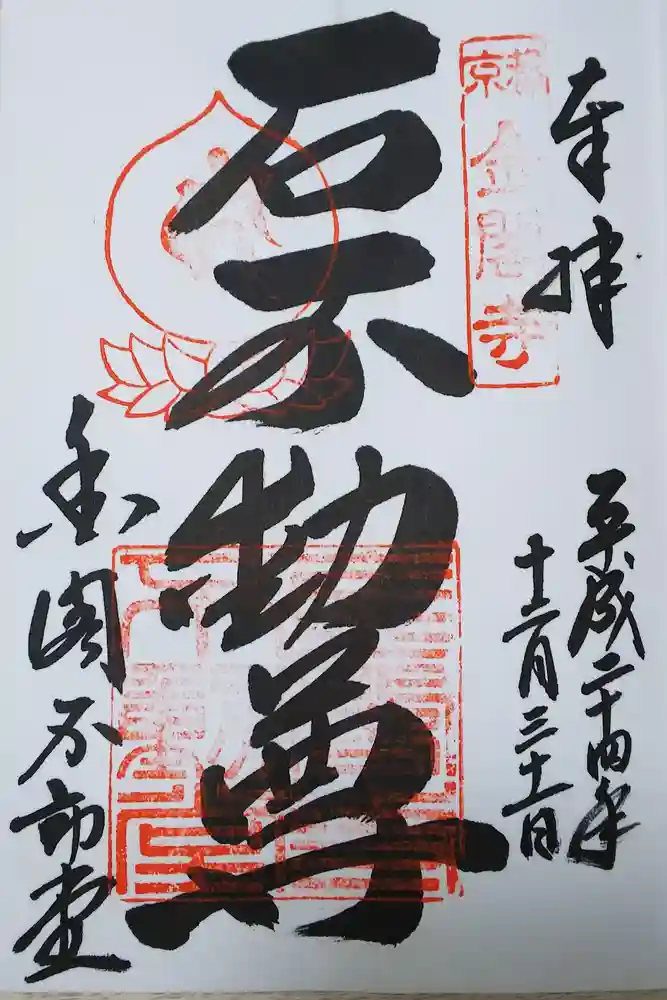 奉拝
京都
金閣寺
平成二十四年
十二月三十一日
石不動尊
金閣不動堂